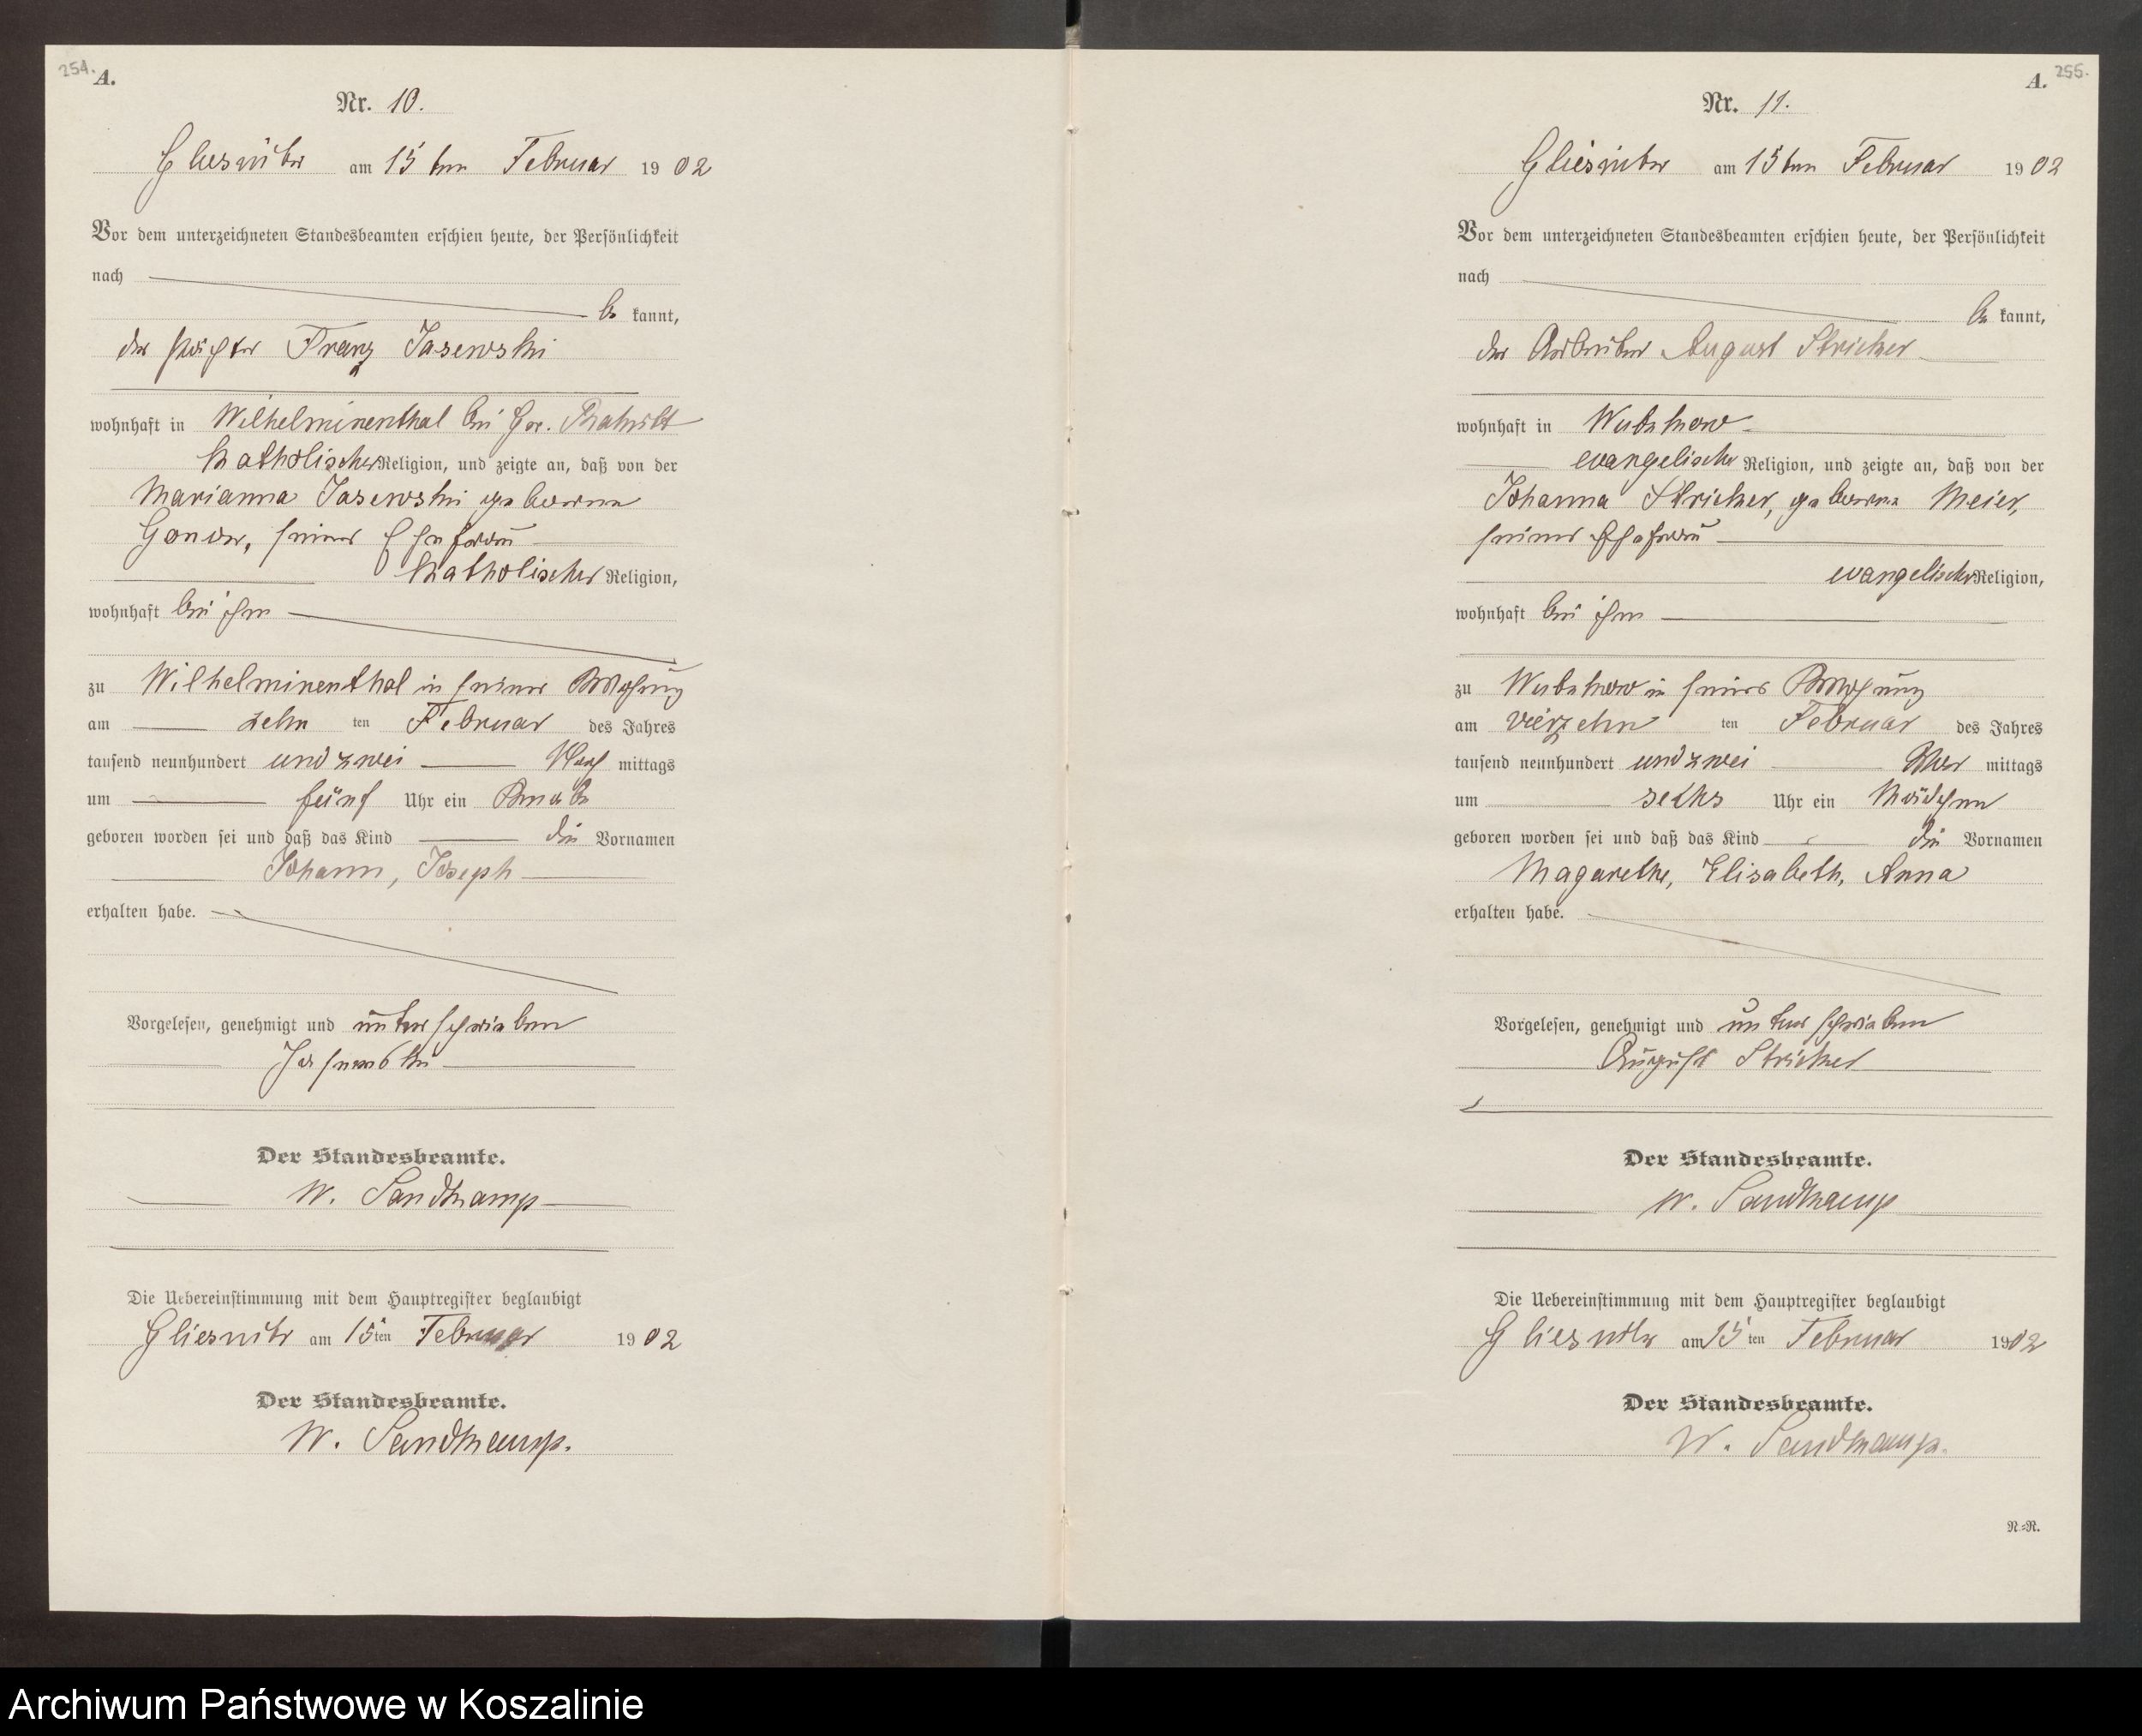 254.
A.
Nr. 10.
am 15 ten Februar 1902
Vor dem unterzeichneten Standesbeamten erschien heute, der Persönlichkeit
nach
be kannt,
der Franz Jasewski
wohnhaft in Wilhelminenthal bei Gr.
katholischer Religion, und zeigte an, daß von der
Marianna Jasewski geborene
seiner Ehefrau
katholischer Religion,
wohnhaft bei ihm
zu Wilhelminenthal in seiner Wohnung
am zehn ten Februar des Jahres
tausend neunhundert und zwei Nach mittags
um fünf Uhr ein Knabe
geboren worden sei und daß das Kind die Vornamen
Johann, Joseph
erhalten habe.
Vorgelesen, genehmigt und unterschrieben
Der Standesbeamte.
W. Sandkamp
Die Uebereinstimmung mit dem Hauptregister beglaubigt
Gliesnitz am 15 ten Februar 1902
Der Standesbeamte.
W. Sandkamp.
A. 255.
Nr. 11.
am 15 ten Februar 1902
Vor dem unterzeichneten Standesbeamten erschien heute, der Persönlichkeit
nach
be kannt,
der Arbeiter August Stricker
wohnhaft in
evangelischer Religion, und zeigte an, daß von der
Johanna Stricker, geborene Meier,
seiner Ehefrau
evangelischer Religion,
wohnhaft bei ihm
zu in seiner Wohnung
am vierzehn ten Februar des Jahres
tausend neunhundert und zwei Vor mittags
um sechs Uhr ein Mädchen
geboren worden sei und daß das Kind die Vornamen
Magarethe, Elisabeth, Anna
erhalten habe.
Vorgelesen, genehmigt und unterschrieben
August Stricker
Der Standesbeamte.
W. Sandkamp
Die Uebereinstimmung mit dem Hauptregister beglaubigt
Gliesnitz am 15 ten Februar 1902
Der Standesbeamte.
W. Sandkamp.
N.=N.
Archiwum Państwowe w Koszalinie